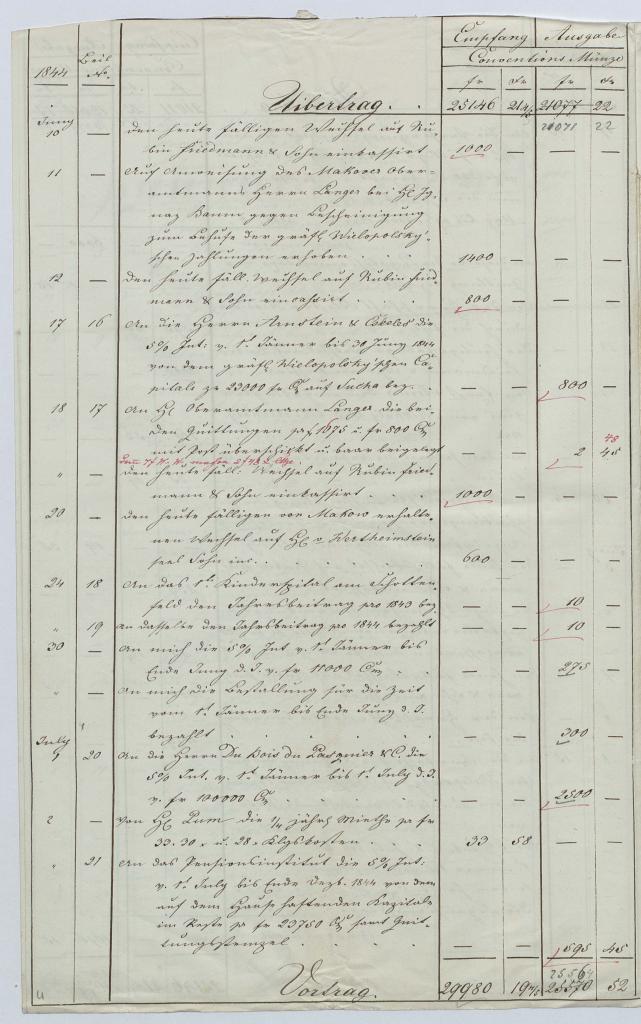 Empfang Ausgabe
1844 Beil No. Conventions Münze
fr xr fr xr
Uibertrag. . 25146 21 4/5 21077 22
21071 22
Juny
10 — den heute fälligen Wechsel auf Ru-
bin Friedmann & Sohn einkassirt 1000 — — —
11 — Auf Anweisung des Makower Ober-
amtmanns Herrn Langer bei H. Ig-
naz Baum gegen Bescheinigung
zum Behufe der gräfl Wielopolsky'-
schen Zahlungen erhoben . . . 1400 — — —
12 — den heute fäll. Wechsel auf Rubin Fried-
mann & Sohn eincassirt . . . 800 — — —
17 16 An die Herrn Arnstein & Eskeles die
5% Int: v. 1t Jänner bis 30 Juny 1844
von dem gräfl Wielopolsky'schen Ca-
pitale pr 23000 fr auf Sucha bez. . — — 800 —
18 17 An H. Oberamtmann Langer die bei-
den Quittungen pr f 1075 u. fr 800
mit Post überschickt u. baar beigelegt — — 2 45
48
„ — den heute fäll. Wechsel auf Rubin Fried-
mann & Sohn einkassirt . . . 1000 — — —
20 — den heute fälligen von Makow erhalte-
nen Wechsel auf H. v. Wertheimstein
seel Sohn inc. . . . 600 — — —
24 18 An das 1te Kinderspital am Schotten-
feld den Jahresbeitrag pro 1843 bez — — 10 —
„ 19 An dasselbe den Jahrsbeitrag pro 1844 bezahlt — — 10 —
30 — An mich die 5% Int v. 1t Jänner bis
Ende Juny d. J. v. fr 11000 — — 275 —
„ — An mich die Bestallung für die Zeit
vom 1t Jänner bis Ende Juny d. J.
bezahlt . . . — — 300 —
July
1 20 An die Herrn Du Bois du Pasquier & C. die
5% Int. v. 1t Jänner bis 1t July d. J.
v. fr 100000 . . . — — 2500 —
2 — von H. Lum die 1/4 jährl Miethe pr fr
33. 30 x u. 28 x Klgskosten . . 33 58 — —
„ 21 An das Pensionsinstitut die 5% Int:
v. 1t July bis Ende Dezb. 1844 von dem
auf dem Hause haftenden Kapitale
im Reste pr fr 23750 samt Quit-
tungsstempel . . . — — 595 45
Vortrag. 29980 19 4/5 25570 52